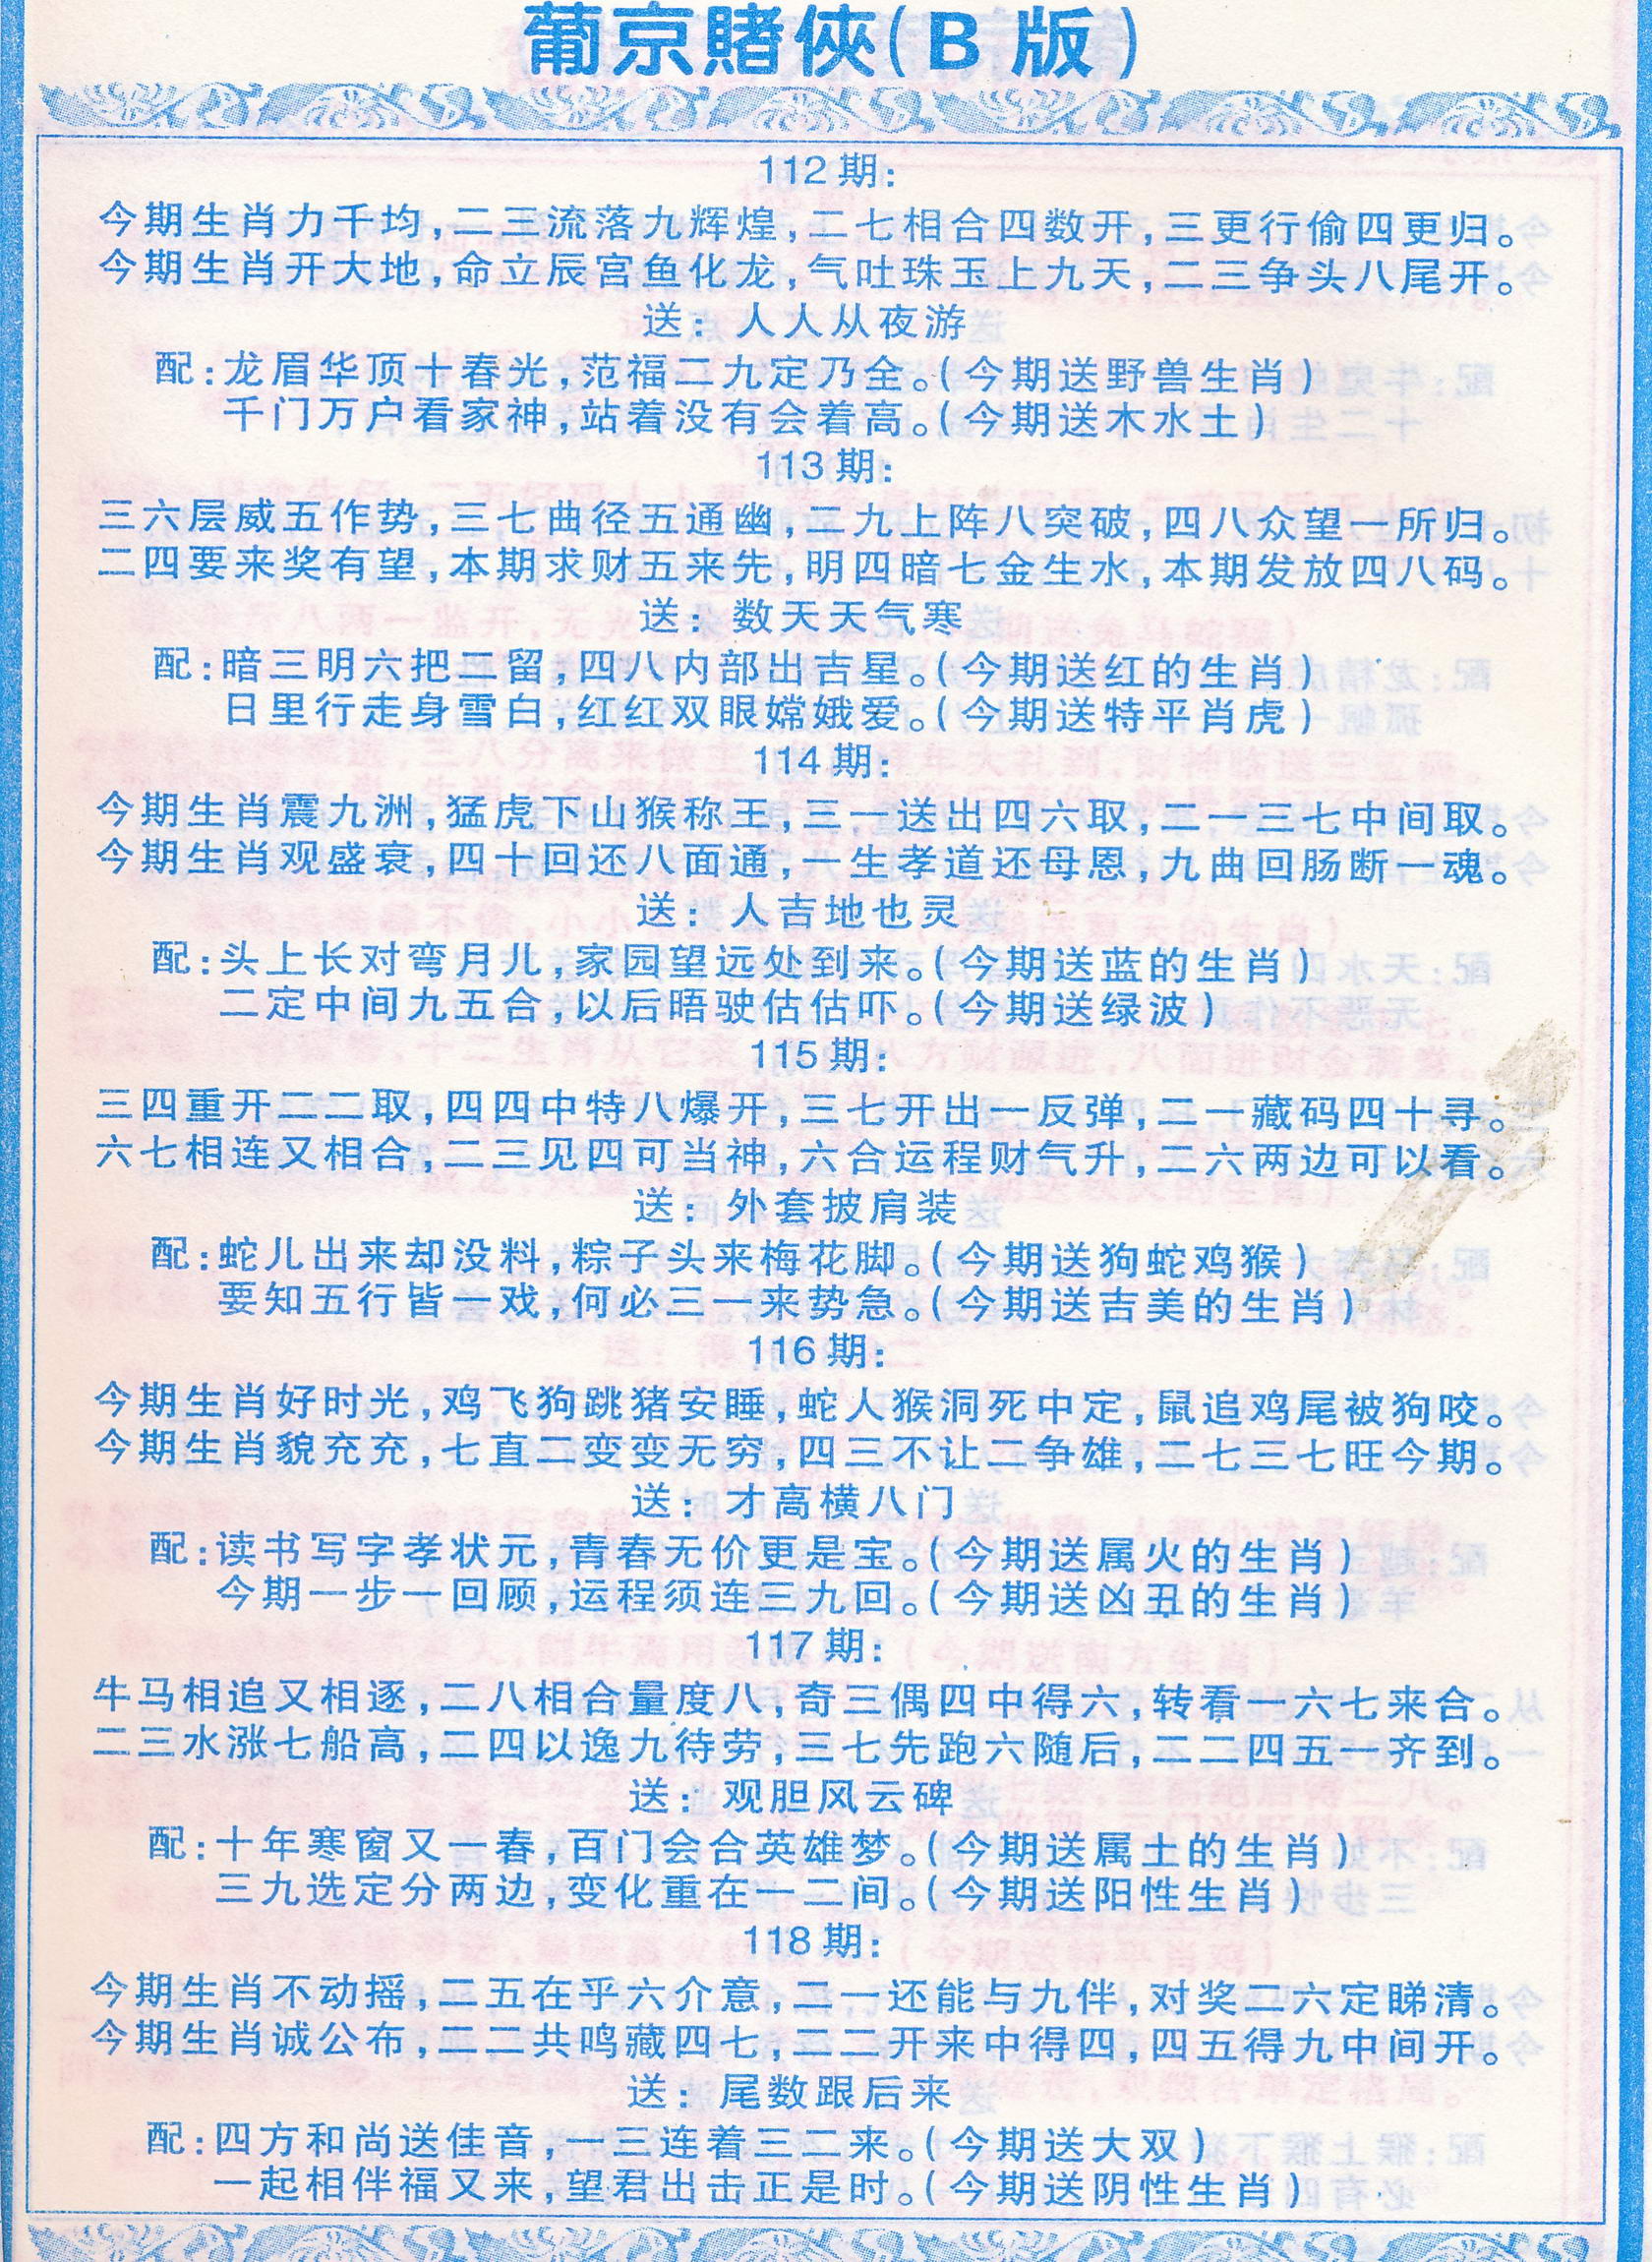 葡京賭俠(B 版)
112期:
今期生肖力千均,二三流落九辉煌,二七相合四数开,三更行偷四更归。
今期生肖开大地,命立辰宫鱼化龙,气吐珠玉上九天,二三争头八尾开。
送:人人从夜游
配:龙眉华顶十春光,范福二九定乃全。(今期送野兽生肖)
千门万户看家神,站着没有会着高。(今期送木水土)
113期:
三六层威五作势,三七曲径五通幽,二九上阵八突破,四八众望一所归。
二四要来奖有望,本期求财五来先,明四暗七金生水,本期发放四八码。
送:数天天气寒
配:暗三明六把二留,四八内部出吉星。(今期送红的生肖)
日里行走身雪白,红红双眼嫦娥爱。(今期送特平肖虎)
114期:
今期生肖震九洲,猛虎下山猴称王,三一送出四六取,二一三七中间取。
今期生肖观盛衰,四十回还八面通,一生孝道还母恩,九曲回肠断一魂。
送:人吉地也灵
配:头上长对弯月儿,家园望远处到来。(今期送蓝的生肖)
二定中间九五合,以后晤驶估估吓。(今期送绿波)
115期:
三四重开二二取,四四中特八爆开,三七开出一反弹,二一藏码四十寻。
六七相连又相合,二三见四可当神,六合运程财气升,二六两边可以看。
送:外套披肩装
配:蛇儿出来却没料,粽子头来梅花脚。(今期送狗蛇鸡猴)
要知五行皆一戏,何必三一来势急。(今期送吉美的生肖)
116期:
今期生肖好时光,鸡飞狗跳猪安睡,蛇人猴洞死中定,鼠追鸡尾被狗咬。
今期生肖貌充充,七直二变变无穷,四三不让二争雄,二七三七旺今期。
送:才高横八门
配:读书写字孝状元,青春无价更是宝。(今期送属火的生肖)
今期一步一回顾,运程须连三九回。(今期送凶丑的生肖)
117期:
牛马相追又相逐,二八相合量度八,奇三偶四中得六,转看一六七来合。
二三水涨七船高,二四以逸九待劳,三七先跑六随后,二二四五一齐到。
送:观胆风云碑
配:十年寒窗又一春,百门会合英雄梦。(今期送属土的生肖)
三九选定分两边,变化重在一二间。(今期送阳性生肖)
118期:
今期生肖不动摇,二五在乎六介意,二一还能与九伴,对奖二六定睇清。
今期生肖诚公布,二二共鸣藏四七,二二开来中得四,四五得九中间开。
送:尾数跟后来
配:四方和尚送佳音,一三连着三二来。(今期送大双)
一起相伴福又来,望君出击正是时。(今期送阴性生肖)